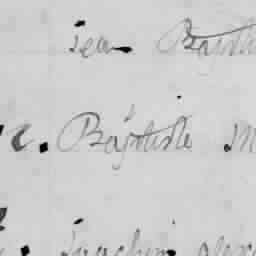 Jean Baptis
2. Baptiste M
Joachim Alex